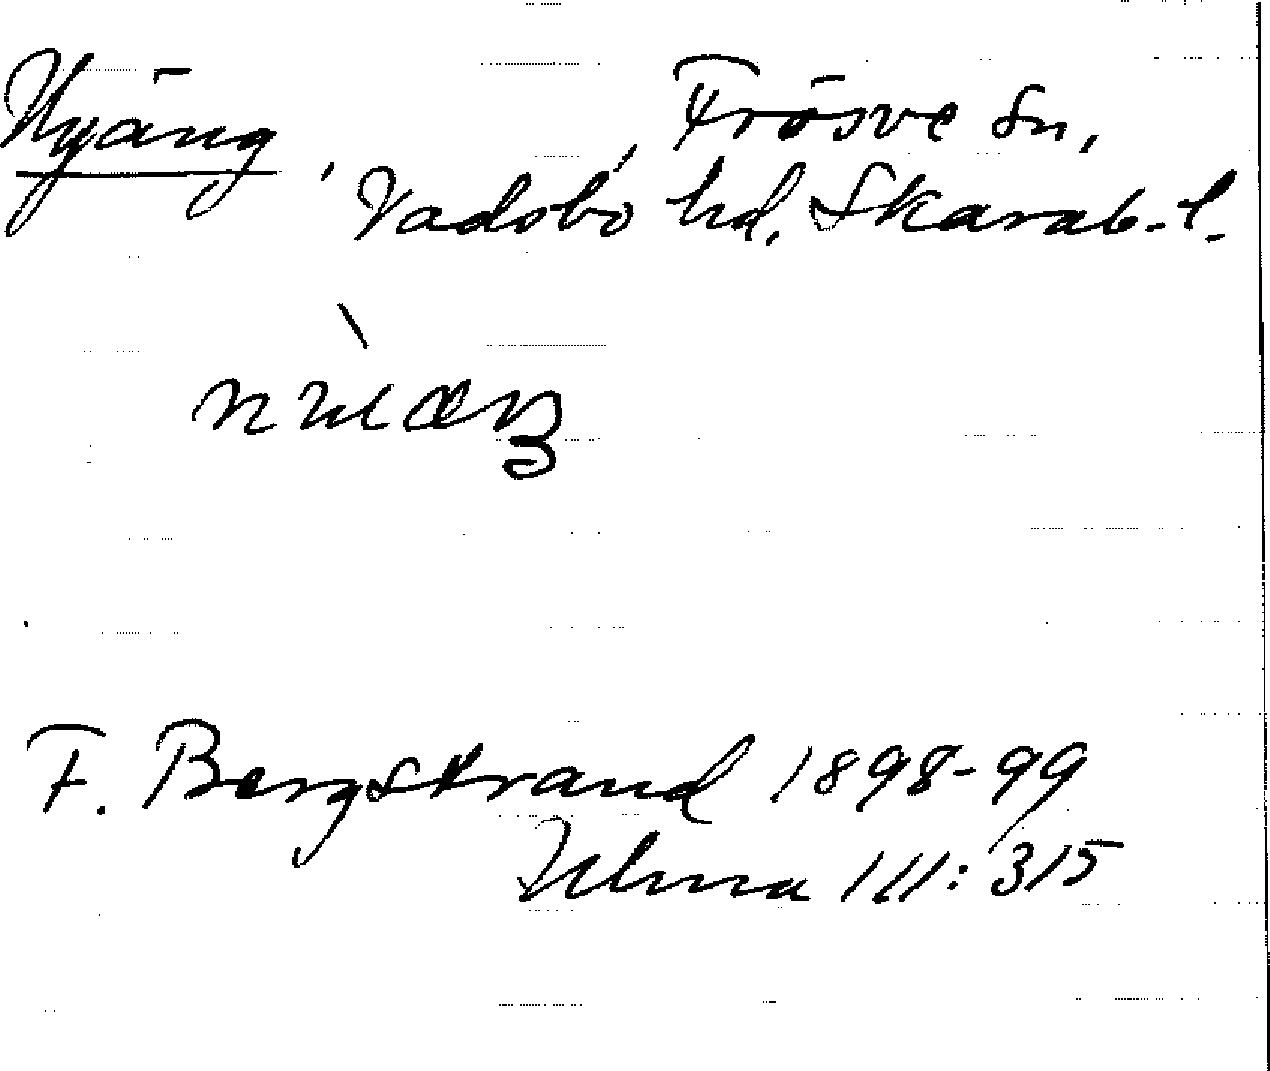 Nyäng, Frösve sn,
Vadsbo hd, Skarab. l.
F. Bergstrand 1898-99
Ulma 111: 315